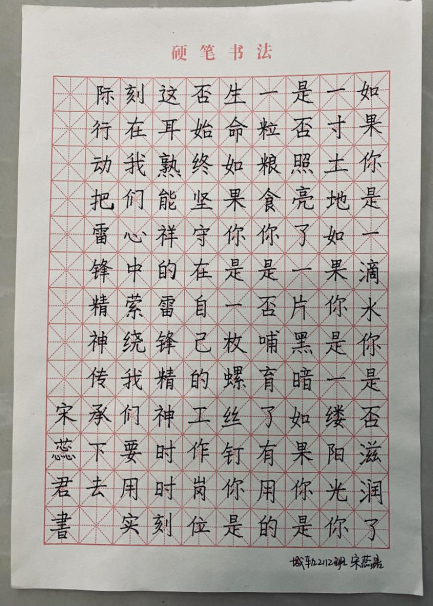 硬笔书法
如果你是一滴水你是否滋润了
一寸土地如果你是一缕阳光你
是否照亮了一片黑暗如果你是
一粒粮食你是否哺育了有用的
生命如果你是一枚螺丝钉你是
否始终坚守在自己的工作岗位
这耳熟能祥的雷锋精神时时刻
刻在我们心中萦绕我们要用实
际行动把雷锋精神传承下去
宋蕊君書
城轨2112班 宋蕊君